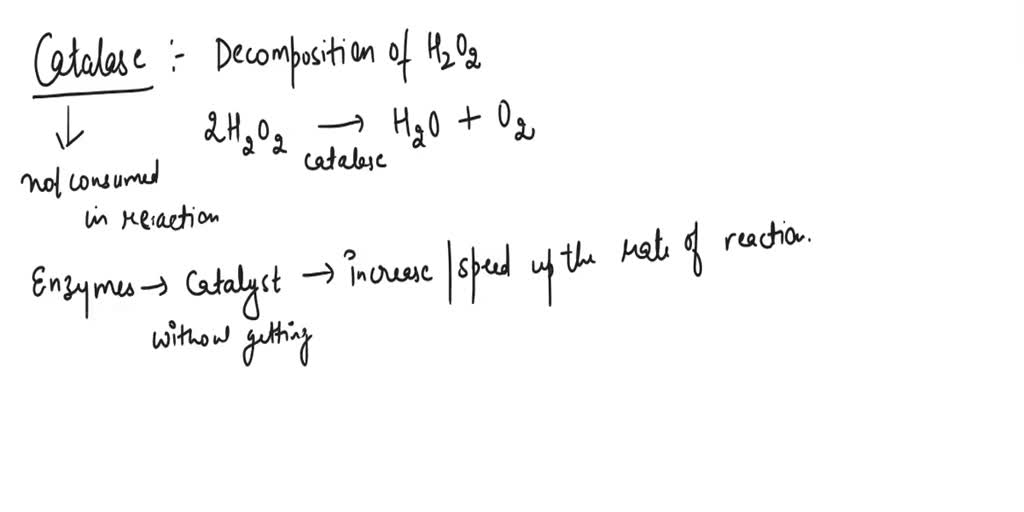 Catalase :- Decomposition of H₂O₂
2H₂O₂ → H₂O + O₂
catalase
↓
not consumed
in reaction
Enzymes → Catalyst → increase | speed up the rate of reaction.
without getting